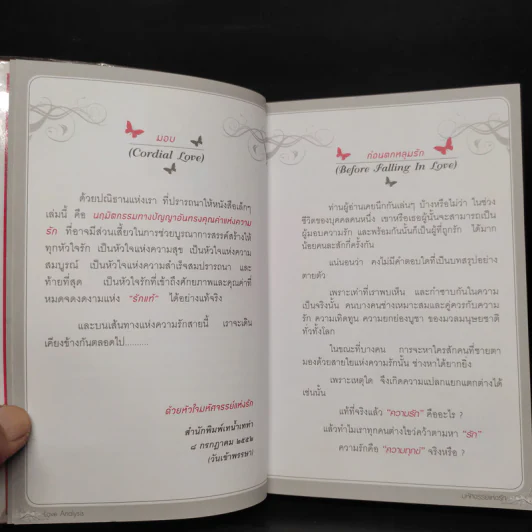 มอบ
(Cordial Love)
ด้วยปณิธานแห่งเรา ที่ปรารถนาให้หนังสือเล็กๆ
เล่มนี้ คือ นฤมิตกรรมทางปัญญาอันทรงคุณค่าแห่งความ
รัก ที่อาจมีส่วนเสี้ยวในการช่วยบูรณาการสรรค์สร้างให้
ทุกหัวใจรัก เป็นหัวใจแห่งความสุข เป็นหัวใจแห่งความ
สมบูรณ์ เป็นหัวใจแห่งความสำเร็จสมปรารถนา และ
ท้ายที่สุด เป็นหัวใจรักที่เข้าถึงศักยภาพและคุณค่าที่
หมดจดงดงามแห่ง "รักแท้" ได้อย่างแท้จริง
และบนเส้นทางแห่งความรักสายนี้ เราจะเดิน
เคียงข้างกันตลอดไป..........
ด้วยหัวใจมหัศจรรย์แห่งรัก
สำนักพิมพ์เทน้ำเทท่า
๘ กรกฎาคม ๒๕๕๒
(วันเข้าพรรษา)
Love Analysis
ก่อนตกหลุมรัก
(Before Falling In Love)
ท่านผู้อ่านเคยนึกกันเล่นๆ บ้างหรือไม่ว่า ในช่วง
ชีวิตของบุคคลคนหนึ่ง เขาหรือเธอผู้นั้นจะสามารถเป็น
ผู้มอบความรัก และพร้อมกันนั้นก็เป็นผู้ที่ถูกรัก ได้มาก
น้อยคนละสักกี่ครั้งกัน
แน่นอนว่า คงไม่มีคำตอบใดที่เป็นบทสรุปอย่าง
ตายตัว
เพราะเท่าที่เราพบเห็น และกำซาบกันในความ
เป็นจริงนั้น คนบางคนช่างเหมาะสมและคู่ควรกับความ
รัก ความเทิดทูน ความยกย่องบูชา ของมวลมนุษยชาติ
ทั่วทั้งโลก
ในขณะที่บางคน การจะหาใครสักคนที่ชายตา
มองด้วยสายใยแห่งความรักนั้น ช่างหาได้ยากยิ่ง
เพราะเหตุใด จึงเกิดความแปลกแยกแตกต่างได้
เช่นนั้น
แท้ที่จริงแล้ว "ความรัก" คืออะไร ?
แล้วทำไมเราทุกคนต่างไขว่คว้าตามหา "รัก"
ความรักคือ "ความทุกข์" จริงหรือ ?